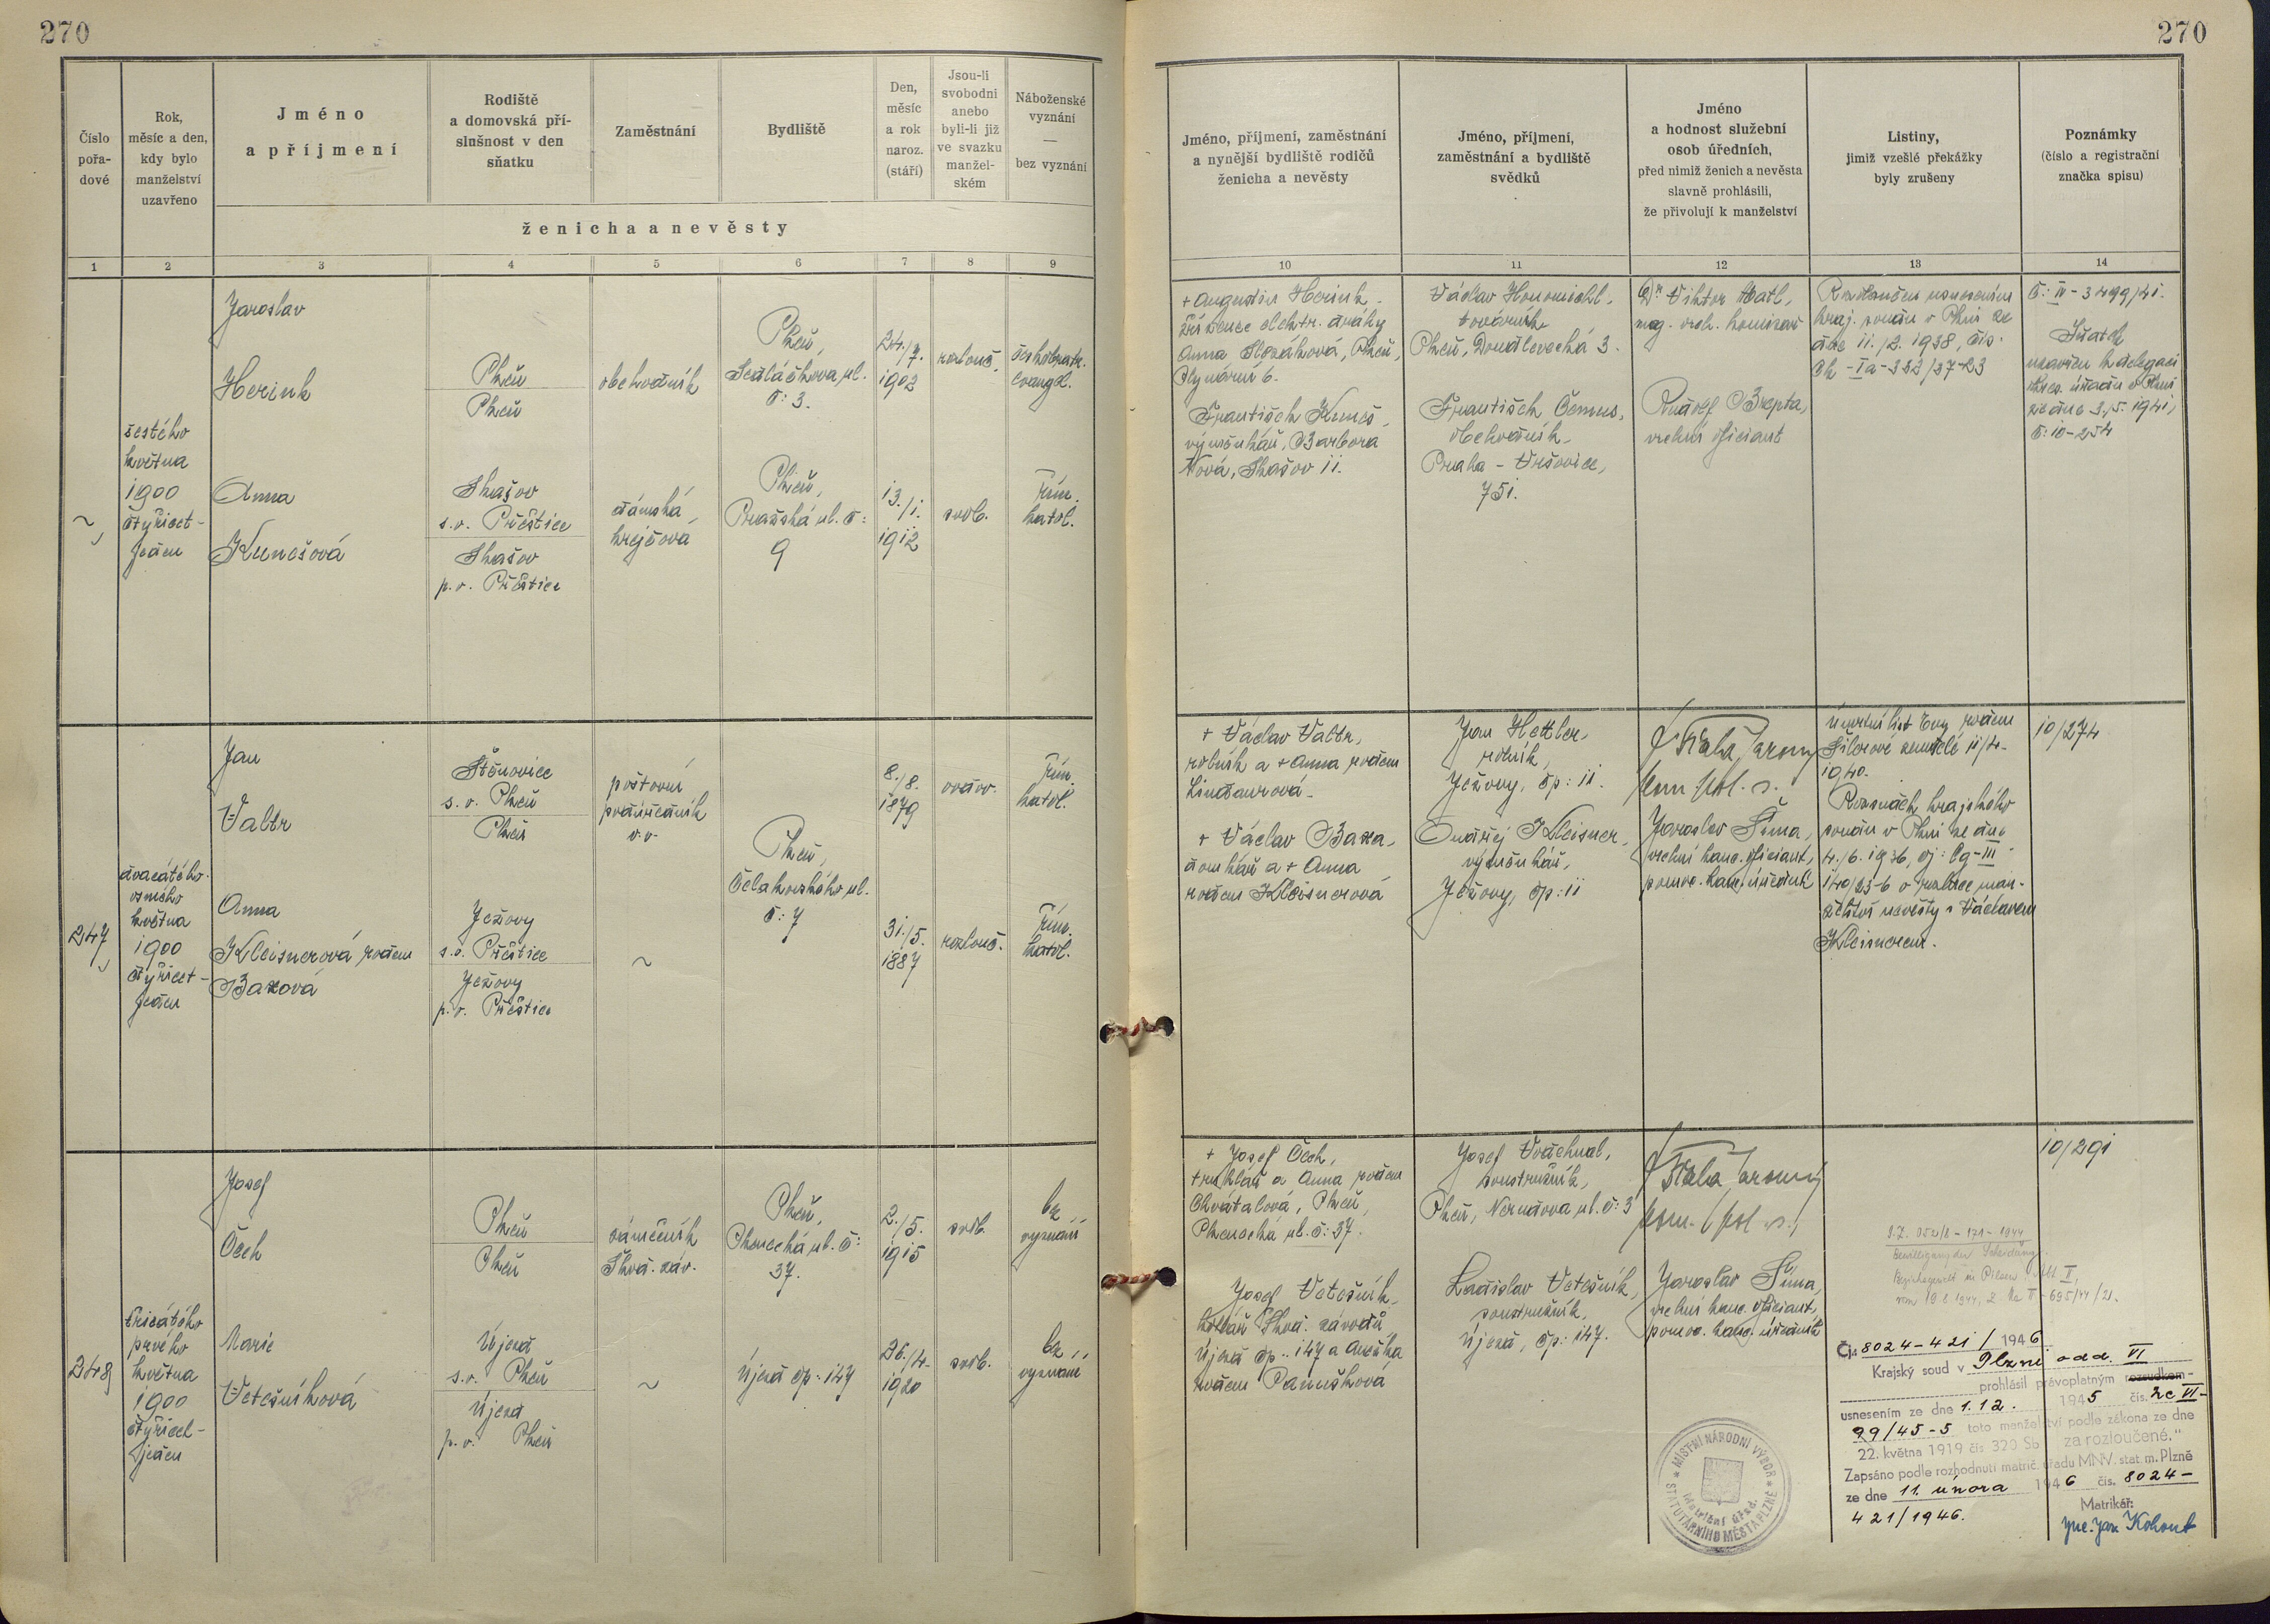 270
270
Číslo
pořa-
dové
Rok,
měsíc a den,
kdy bylo
manželství
uzavřeno
Jméno
a příjmení
Rodiště
a domovská pří-
slušnost v den
sňatku
Zaměstnání
Bydliště
Den,
měsíc
a rok
naroz.
(stáří)
Jsou-li
svobodni
anebo
byli-li již
ve svazku
manžel-
ském
Náboženské
vyznání
—
bez vyznání
ženicha a nevěsty
Jméno, příjmení, zaměstnání
a nynější bydliště rodičů
ženicha a nevěsty
Jméno, příjmení,
zaměstnání a bydliště
svědků
Jméno
a hodnost služební
osob úředních,
před nimiž ženich a nevěsta
slavně prohlásili,
že přivolují k manželství
Listiny,
jimiž vzešlé překážky
byly zrušeny
Poznámky
(číslo a registrační
značka spisu)
1 2 3 4 5 6 7 8 9
10 11 12 13 14
~
šestého
května
1900
čtyřicet-
jeden
Jaroslav
Herink
Plzeň
Plzeň
obchodník
Plzeň,
Sedláčkova ul.
č: 3.
24./7.
1902
rozlouč.
českobratr.
evangel.
Anna
Kunešová
Skašov
s.o. Přeštice
Skašov
p.o. Přeštice
dámská
krejčová
Plzeň,
Pražská ul. č:
9
13./1.
1912
svob.
řím.
katol.
+ Augustin Herink,
zřízenec elektr. dráhy
Anna Slezáková, Plzeň,
Plynární 6.
František Kuneš,
výměnkář, Barbora
Nová, Skašov 11.
Václav Honomichl,
továrník
Plzeň, Doudlevecká 3.
František Čermus,
obchodník,
Praha - Vršovice,
751.
Dr Viktor Matl,
mag. vrch. komisař
Rudolf Brepta,
vrchní oficiant
Rozloučen usnesením
kraj. soudu v Plzni ze
dne 11./2. 1938, čís.
Ck-Ia-322/37-23
Č: IV-3499/41.
Sňatek
uzavřen z delegace
okres. úřadu v Plzni
ze dne 3./5. 1941,
č: 10-254
247
dvacátého
osmého
května
1900
čtyřicet-
jeden
Jan
Valtr
Štěnovice
s.o. Plzeň
Plzeň
poštovní
podúředník
v.v.
Plzeň,
Čelakovského ul.
č: 7
8./8.
1879
ovdov.
řím.
katol.
Anna
Kleisnerová rodem
Baxová
Ježovy
s.o. Přeštice
Ježovy
p.o. Přeštice
~
31./5.
1887
rozlouč.
řím.
katol.
+ Václav Valtr,
rolník a + Anna rodem
Lindaurová.
+ Václav Baxa,
domkář a + Anna
rodem Kleisnerová
Jan Hettler,
rolník,
Ježovy, čp: 11.
Ondřej Kleisner,
výměnkář,
Ježovy, čp: 11
Jaroslav Šíma,
vrchní kanc. oficiant,
pomoc. kanc. úředník
Úmrtní list Evy rodem
Šilerové zemřelé 11/4.
1940.
Rozsudek krajského
soudu v Plzni ze dne
4./6. 1936, čj: Cg-III
140/25-6 o rozluce man-
želství nevěsty s Václavem
Kleisnerem.
10/274
248
třicátého
prvého
května
1900
čtyřicet-
jeden
Josef
Čech
Plzeň
Plzeň
zámečník
Škod. záv.
Plzeň,
Plzenecká ul. č:
37.
2./5.
1915
svob.
bez
vyznání
Marie
Vetešníková
Újezd
s.o. Plzeň
Újezd
p.o. Plzeň
~
Újezd čp: 147
26./4.
1920
svob.
bez
vyznání
+ Josef Čech,
truhlář a Anna rodem
Chvátalová, Plzeň,
Plzenecká ul. č: 37.
Josef Vetešník,
kotlář Škod. závodů
Újezd čp.: 147 a Anežka
rodem Panušková
Josef Vváchnal,
soustružník,
Plzeň, Nerudova ul. č: 3
Ladislav Vetešník,
soustružník,
Újezd, čp: 147.
Jaroslav Šíma,
vrchní kanc. oficiant,
pomoc. kanc. úředník
10/291
Bewilligung der Scheidung
Čj. 8024-421/1946
Krajský soud v Plzni odd. VI
prohlásil právoplatným rozsudkem-
usnesením ze dne 1.12. 1945 čís. 2c VI-
99/45-5 toto manželství podle zákona ze dne
22. května 1919 čís 320 Sb za rozloučené."
Zapsáno podle rozhodnutí matrič. úřadu MNV. stat. m. Plzně
ze dne 11. února 1946 čís. 8024-
421/1946.
Matrikář:
Jar Kohout
MÍSTNÍ NÁRODNÍ VÝBOR
STATUTÁRNÍHO MĚSTA PLZNĚ
Matriční úřad.